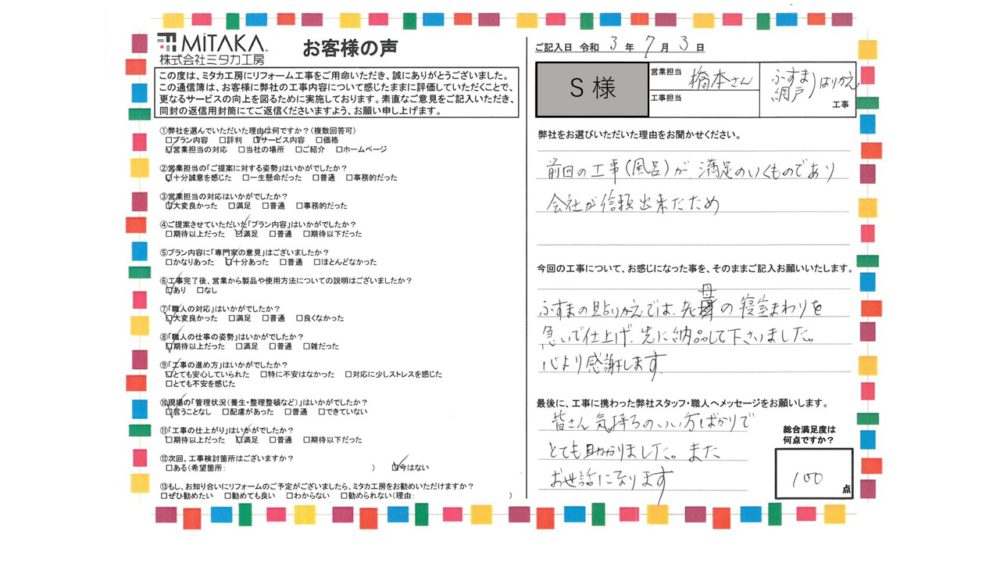 MiTAKA
株式会社ミタカ工房
お客様の声
この度は、ミタカ工房にリフォーム工事をご用命いただき、誠にありがとうございました。
この通信簿は、お客様に弊社の工事内容について感じたままに評価していただくことで、
更なるサービスの向上を図るために実施しております。素直なご意見をご記入いただき、
同封の返信用封筒にてご返信くださいますよう、お願い申し上げます。
①弊社を選んでいただいた理由は何ですか?(複数回答可)
□プラン内容 □評判 ☑サービス内容 □価格
☑営業担当の対応 □当社の場所 □ご紹介 □ホームページ
②営業担当の「ご提案に対する姿勢」はいかがでしたか?
☑十分誠意を感じた □一生懸命だった □普通 □事務的だった
③営業担当の対応はいかがでしたか?
☑大変良かった □満足 □普通 □事務的だった
④ご提案させていただいた「プラン内容」はいかがでしたか?
□期待以上だった ☑満足 □普通 □期待以下だった
⑤プラン内容に「専門家の意見」はございましたか?
□かなりあった ☑十分あった □普通 □ほとんどなかった
⑥工事完了後、営業から製品や使用方法についての説明はございましたか?
☑あり □なし
⑦「職人の対応」はいかがでしたか?
☑大変良かった □満足 □普通 □良くなかった
⑧「職人の仕事の姿勢」はいかがでしたか?
☑期待以上だった □満足 □普通 □雑だった
⑨「工事の進め方」はいかがでしたか?
☑とても安心していられた □特に不安はなかった □対応に少しストレスを感じた
□とても不安を感じた
⑩現場の「管理状況(養生・整理整頓など)」はいかがでしたか?
☑言うことなし □配慮があった □普通 □できていない
⑪「工事の仕上がり」はいかがでしたか?
□期待以上だった ☑満足 □普通 □期待以下だった
⑫次回、工事検討箇所はございますか?
□ある(希望箇所: ) ☑今はない
⑬もし、お知り合いにリフォームのご予定がございましたら、ミタカ工房をお勧めいただけますか?
□ぜひ勧めたい □勧めても良い □わからない □勧められない(理由: )
ご記入日 令和 3 年 7 月 3 日
S 様
営業担当 橋本さん
工事担当
ふすま
網戸 はりかえ
工事
弊社をお選びいただいた理由をお聞かせください。
前回の工事(風呂)が、満足のいくものであり
会社が信頼出来たため
今回の工事について、お感じになった事を、そのままご記入お願いいたします。
ふすまの貼りかえでは、先母の寝室まわりを
急いで仕上げ、先に納品して下さいました。
心より感謝します。
最後に、工事に携わった弊社スタッフ・職人へメッセージをお願いします。
皆さん気持ちのいい方ばかりで
とても助かりました。また
お世話になります
総合満足度は
何点ですか?
100 点